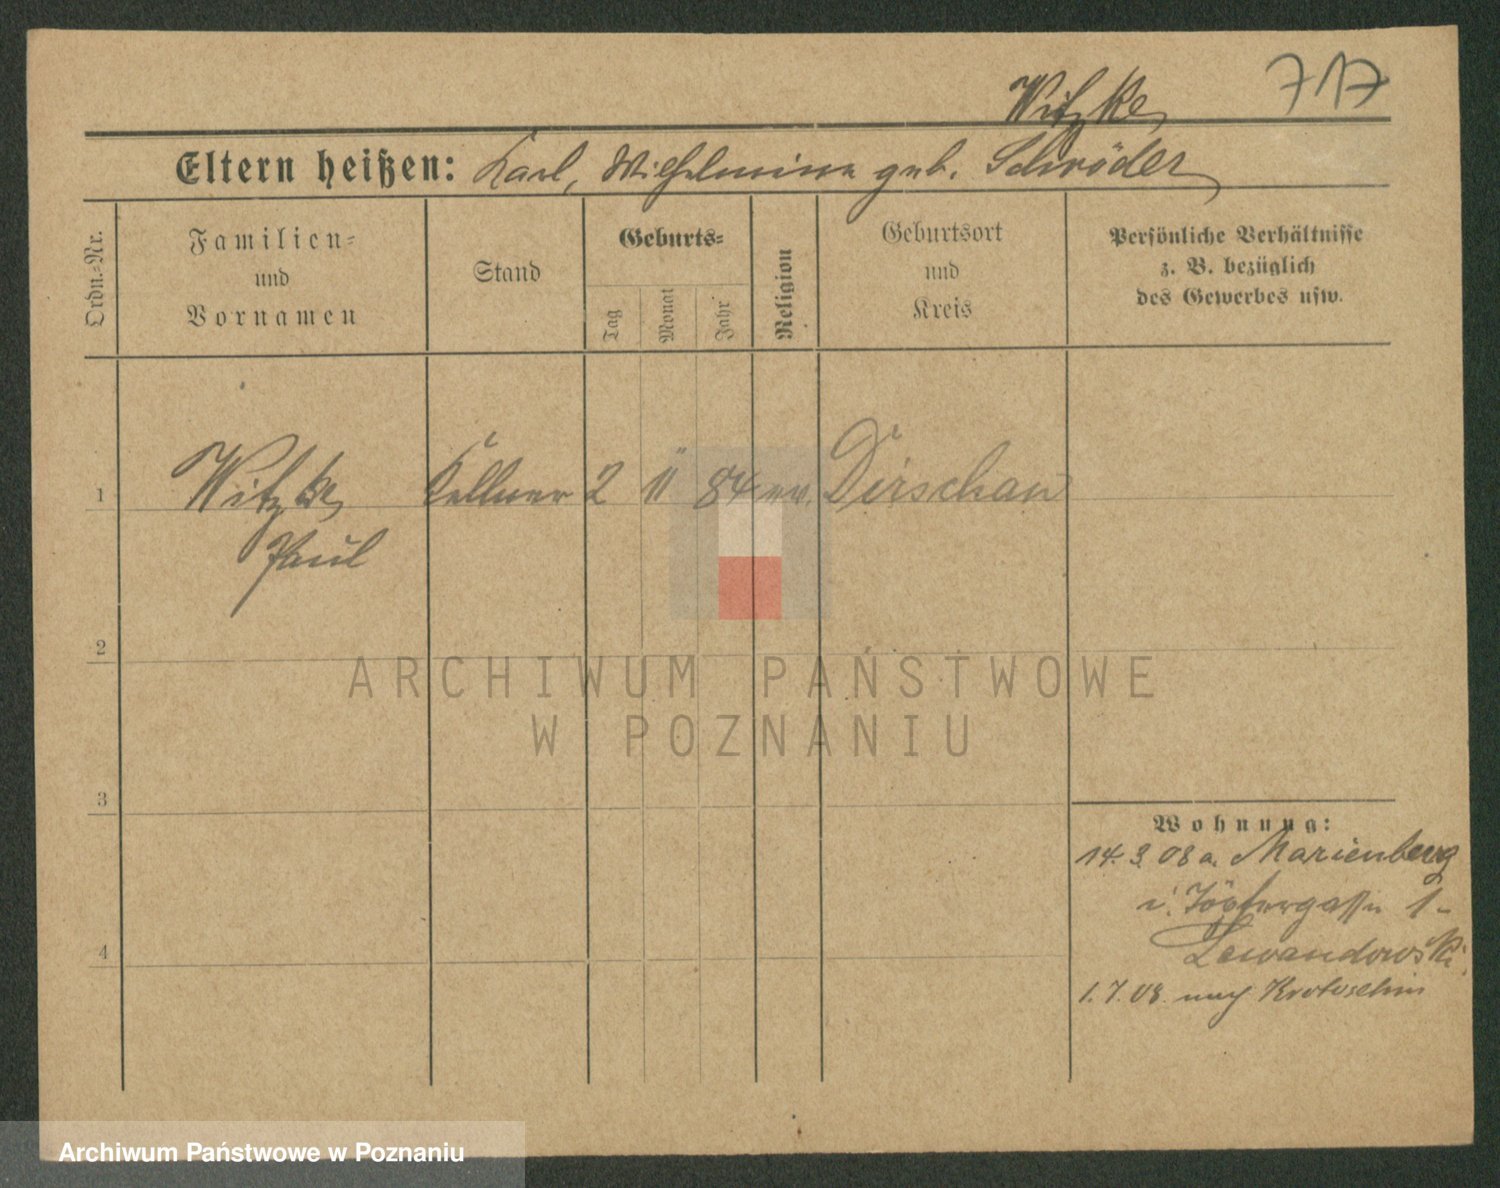 717
Witzke
Eltern heißen: Karl, Wilhelmine geb. Schröder
Ordn.-Nr.
Familien-
und
Vornamen
Stand
Geburts-
Tag
Monat
Jahr
Religion
Geburtsort
und
Kreis
Persönliche Verhältnisse
z. B. bezüglich
des Gewerbes usw.
1 Witzke Kellner 2 11 84 ev. Dirschau
Paul
2
ARCHIWUM PAŃSTWOWE
W POZNANIU
3
Wohnung:
14. 3. 08 a. Marienberg
i. Töpfergasse 1-
4 Lewandowski
1. 7. 08. nach Krotoschin
Archiwum Państwowe w Poznaniu